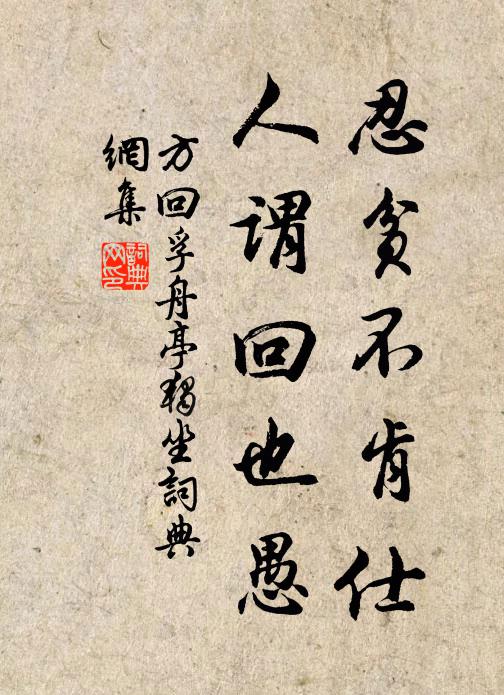 忍貧不肯仕
人謂回也愚
方回孚舟亭獨坐詞典
網集
詞典
网印